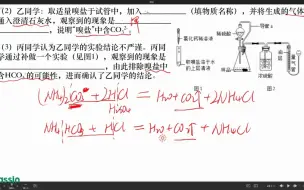 (2) 乙同学:取适量嗅盐于试管中,加入______(填物质名称),并将生成的气体
通入澄清石灰水,观察到的现象是
______,说明"嗅盐"中含CO
(3) 丙同学认为乙同学的实验结论不严谨。丙同
学通过补做一个实验(见图1),观察到的现象
是______,由此排除嗅盐中
含HCO 的可能性,进而确认了乙同学的结论。
氯化钙溶液
嗅盐
于水的上层清液
浓硫酸
图1
(NH₄)₂CO₃ + 2HCl = H₂O + CO₂↑ + 2NH₄Cl
H₂SO₄
NH₄HCO₃ + HCl = H₂O + CO₂↑ + NH₄Cl